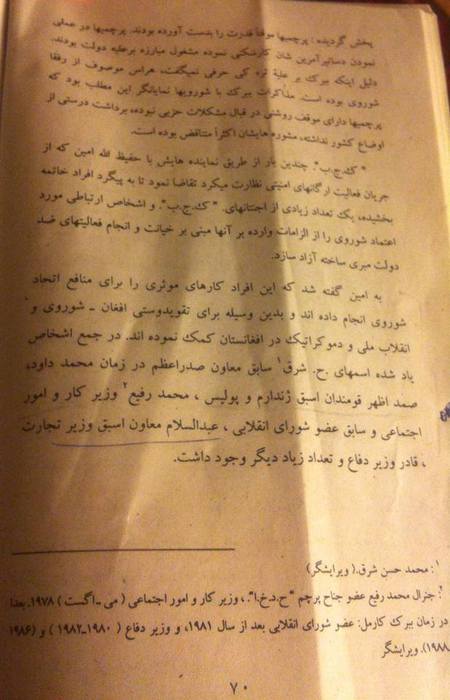 پخش گردیده: پرچمیها موقتاً قدرت را بدست آورده بودند. پرچمیها در عملی
نمودن دساتیرآمرین شان کارشکنی نموده مشغول مبارزه برعلیه دولت بودند.
دلیل اینکه ببرک بر علیهٔ تره کی حرفی نمیگفت، هراس موصوف از رفقا
شوروی بوده است. مذاکرات ببرک با شورویها نمایانگر این مطلب بود که
پرچمیها دارای موقف روشنی در قبال مشکلات حزبی نبوده، برداشت درستی از
اوضاع کشور نداشته، مشوره هایشان اکثراً متناقض بوده است.
"ک.ج.ب". چندین بار از طریق نماینده هایش با حفیظ الله امین که از
جریان فعالیت ارگانهای امنیتی نظارت میکرد تقاضا نمود تا به پیگرد افراد خاتمه
بخشیده، یک تعداد زیادی از اجنتانهای. "ک.ج.ب". و اشخاص ارتباطی مورد
اعتماد شوروی را از الزامات وارده بر آنها مبنی بر خیانت و انجام فعالیتهای ضد
دولت مبری ساخته آزاد سازد.
به امین گفته شد که این افراد کارهای موثری را برای منافع اتحاد
شوروی انجام داده اند و بدین وسیله برای تقویدوستی افغان ـ شوروی و
انقلاب ملی و دموکراتیک در افغانستان کمک نموده اند. در جمع اشخاص
یاد شده اسمهای .ح. شرق¹ سابق معاون صدراعظم در زمان محمد داود،
صمد اظهر قومندان اسبق ژندارم و پولیس ، محمد رفیع² وزیر کار و امور
اجتماعی و سابق عضو شورای انقلابی ، عبدالسلام معاون اسبق وزیر تجارت
، قادر وزیر دفاع و تعداد زیاد دیگر وجود داشت.
¹: محمد حسن شرق.( ویرایشگر)
²: جنرال محمد رفیع عضو جناح پرچم "ح.د.خ.ا".، وزیر کار و امور اجتماعی ( می ـ اگست ) ۱۹۷۸. بعداً
در زمان ببرک کارمل: عضو شورای انقلابی بعد از سال ۱۹۸۱، و وزیر دفاع ( ۱۹۸۰ـ۱۹۸۲ ) و (۱۹۸۶
۱۹۸۸). ویرایشگر
۷۰